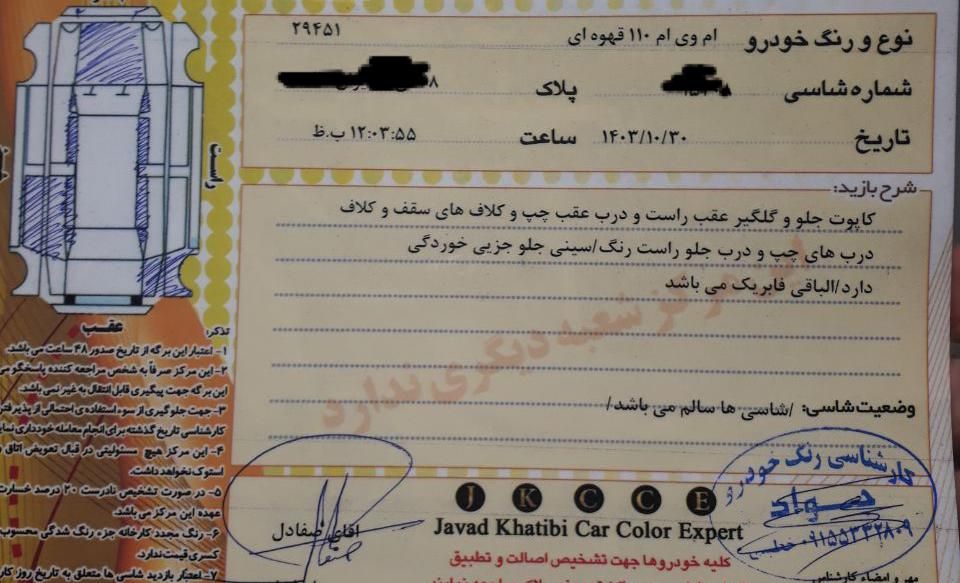 جلو
نوع و رنگ خودرو ام وی ام ۱۱۰ قهوه ای ۲۹۴۵۱
شماره شاسی پلاک
تاریخ ۱۴۰۳/۱۰/۳۰ ساعت ۱۲:۰۳:۵۵ ب.ظ
راست
شرح بازدید:
کاپوت جلو و گلگیر عقب راست و درب عقب چپ و کلاف های سقف و کلاف
درب های چپ و درب جلو راست رنگ/سینی جلو جزیی خوردگی
دارد/الباقی فابریک می باشد
این مرکز شعبه دیگری ندارد
وضعیت شاسی: /شاسی ها سالم می باشد/
عقب
تذکر:
۱- اعتبار این برگه از تاریخ صدور ۴۸ ساعت می باشد.
۲- این مرکز صرفاً به شخص مراجعه کننده پاسخگو می
این برگه جهت پیگیری قابل انتقال به غیر نمی باشد.
۳- جهت جلوگیری از سوء استفاده ی احتمالی از پذیرفتن
کارشناسی تاریخ گذشته برای انجام معامله خودداری
۴- این مرکز هیچ مسئولیتی در قبال تعویض اتاق
استوک نخواهد داشت.
۵- در صورت تشخیص نادرست ۲۰ درصد خسارت
عهده این مرکز می باشد.
۶- رنگ مجدد کارخانه جزء رنگ شدگی محسوب
کسری قیمت ندارد.
۷- اعتبار بازدید شاسی ها متعلق به تاریخ روز
آقای صفادل
J K C C E
Javad Khatibi Car Color Expert
کلیه خودروها جهت تشخیص اصالت و تطبیق
کارشناسی رنگ خودرو
جواد
خطیبی ۰۹۱۵۵۳۳۲۸۰۹
مهر و امضاء کارشناس